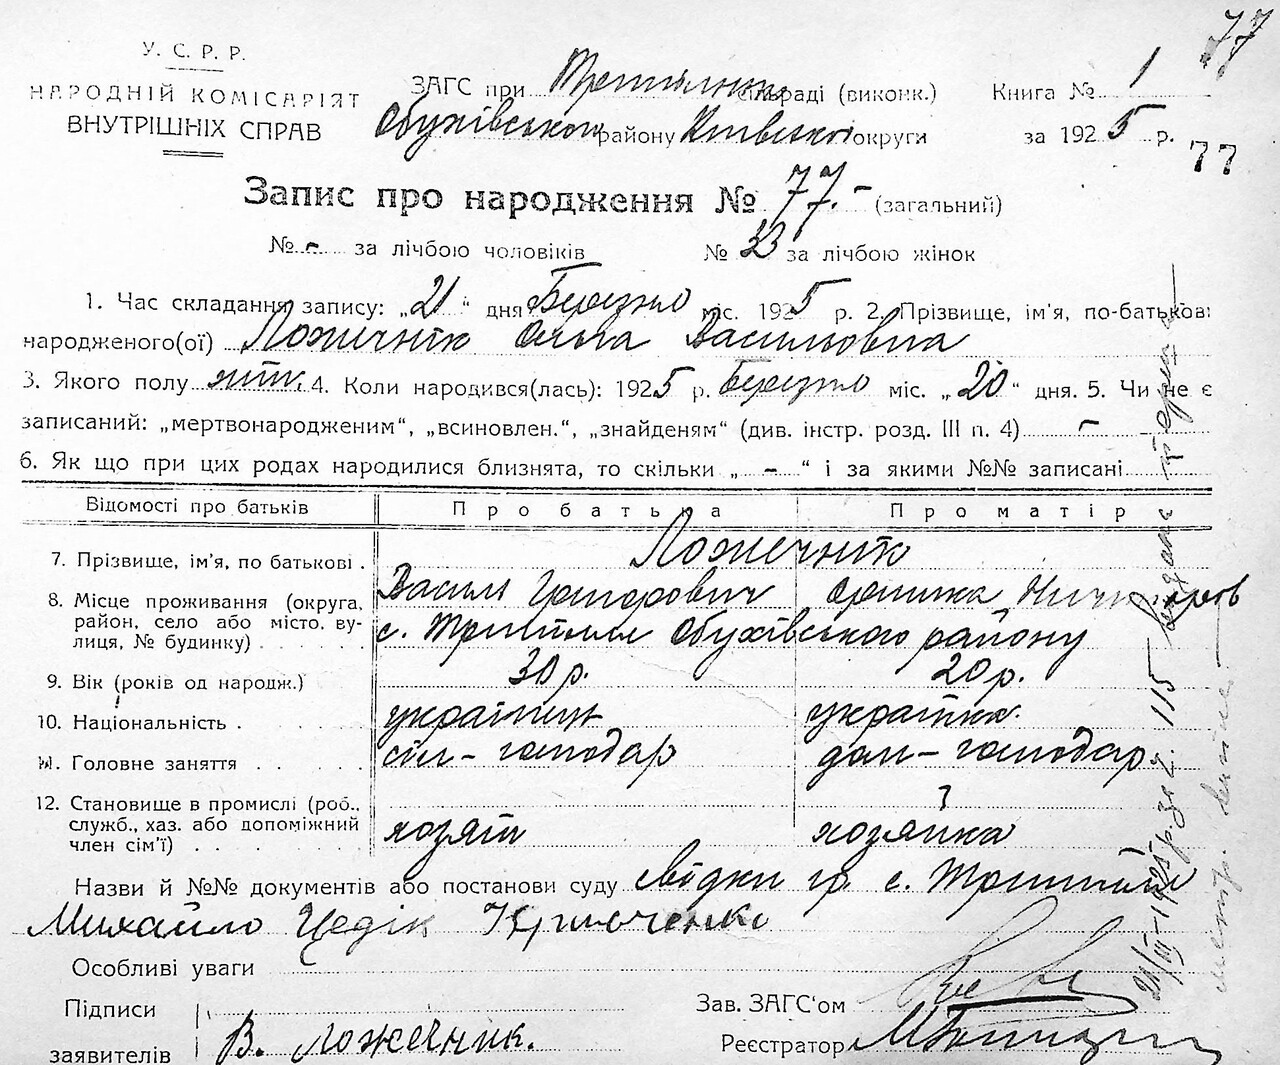 77
У. С. Р. Р.
НАРОДНІЙ КОМІСАРІЯТ
ВНУТРІШНІХ СПРАВ
ЗАГС при сільраді (виконк.) Книга № 1
Обухівського району Київської округи за 1925 р.
77
Запис про народження № 77.- (загальний)
№ - за лічбою чоловіків № 33 за лічбою жінок
1. Час складання запису: „21“ дня Березня міс. 1925 р. 2. Прізвище, ім'я, по-батькові
народженого(ої) Ложечнік Ольга Васильовна
3. Якого полу жін. 4. Коли народився(лась): 1925 р. Березня міс. „20“ дня. 5. Чи не є
записаний: „мертвонародженим“, „всиновлен.“, „знайденям“ (див. інстр. розд. III п. 4) -
6. Як що при цих родах народилися близнята, то скільки „ - “ і за якими №№ записані
Відомості про батьків Про батька Про матір
7. Прізвище, ім'я, по батькові . Ложечнік
Василь Григорович
8. Місце проживання (округа, район, село або місто, вулиця, № будинку) с. Трипілля Обухівського району
9. Вік (років од народж.) 30 р. 20 р.
10. Національність . українця українка.
11. Головне заняття . . . . сіл-господар дом-господар
12. Становище в промислі (роб., служб., хаз. або допоміжний член сім'ї) . . . хозяїн хозяйка
Назви й №№ документів або постанови суду свідки гр. с. Трипілля
Михайло
Особливі уваги
Підписи
заявителів В. Ложечник.
Зав. ЗАГС'ом
Реєстратор
21/III-1925 р. за № 115